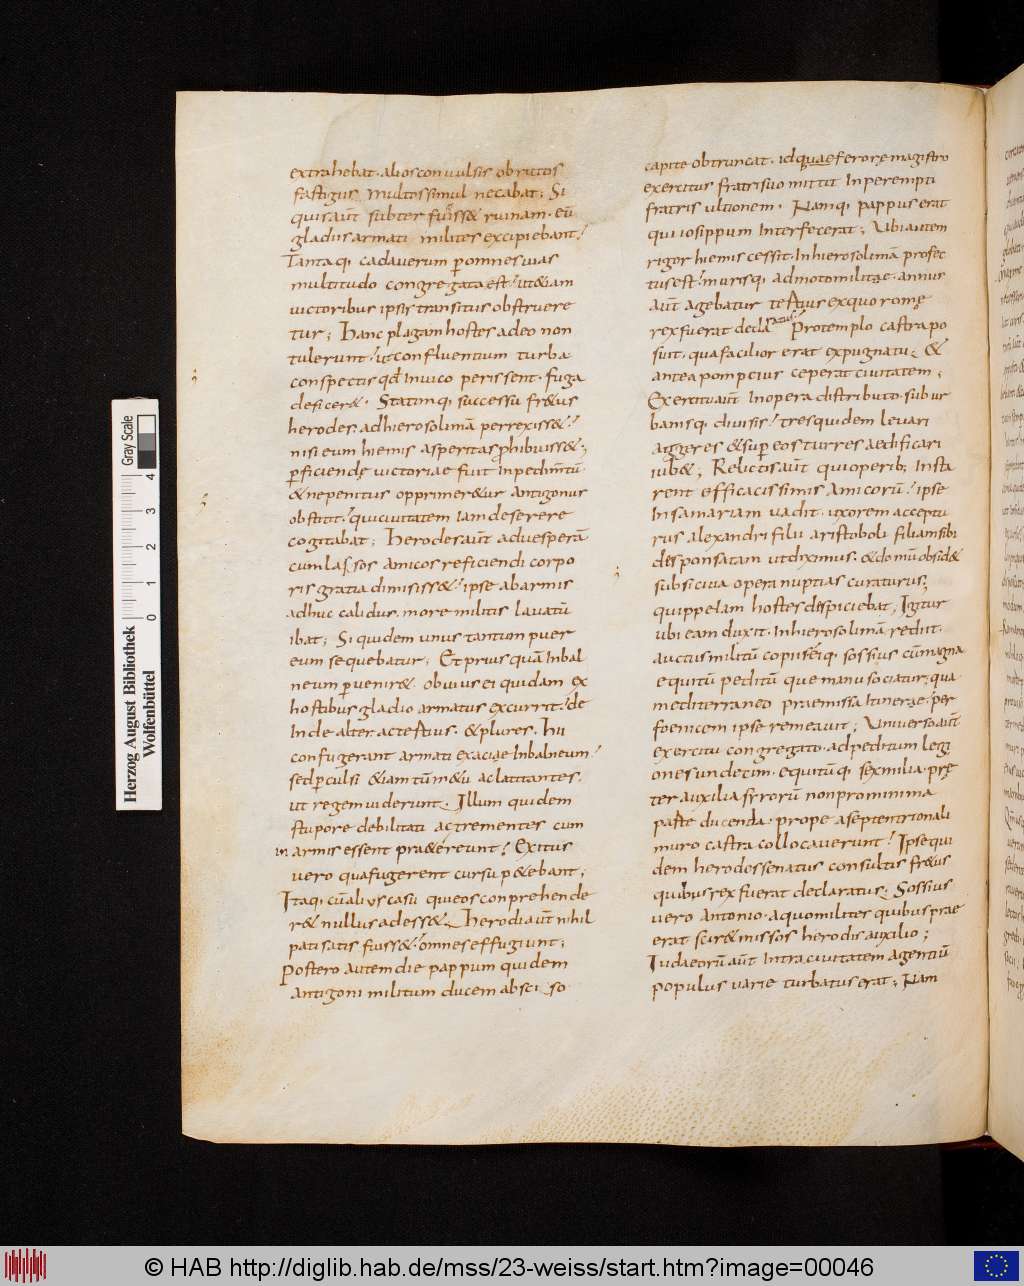 extrahebat. alios conuulsis obrutos
fastigiis multos simul necabat; Si
quis aūt subter fuiss& ruinam. eū
gladiis armati milites excipiebant;
Tantaq; cadauerum p̄ omnes uias
multitudo congregata est; ut &iam
uictoribus ipsis transitus obstruere
tur; Hanc plagam hostes adeo non
tulerunt; ut confluentium turba
conspectis qđ inuico perissent. fuga
deficer&. Statimq; successu fr&us
herodes. ad hierosolimā perrexiss&;
nisi eum hiemis asperitas p̄hibuiss&;
p̄ficiendę uictoriae fuit inpedimtū.
& ne penitus opprimer&ur antigonus
obstitit; qui ciuitatem iam deserere
cogitabat; Herodes aūt ad uesperā
cum lassos amicos reficiendi corpo
ris gratia dimisiss&; ipse ab armis
adhuc calidus. more militis lauatū
ibat; Si quidem unus tantum puer
eum sequebatur; Et prius quā in bal
neum p̄uenir&. obuius ei quidam ex
hostibus gladio armatus excurrit; de
inde alter ac tertius. & plures. Hii
confugerant armati ex aciae in balneum;
sed p̄culsi &iam tū m&u ac latitantes.
ut regem uiderunt. Illum quidem
stupore debilitati ac trementes cum
in armis essent pra&ereunt; Exitus
uero qua fugerent cursu p&ebant;
Itaq; cū alius casu qui eos conprehende
r& nullus adess&. Herodi aūt nihil
pati satis fuiss&; omnes effugiunt;
Postero autem die pappum quidem
antigoni militum ducem absciso
capite obtruncat. idque ferore magistro
exercitus fratri suo mittit in perempti
fratris ultionem. Namq; pappus erat
qui iosippum interfecerat; Ubi autem
rigor hiemis cessit. in hierosolimā profec
tus est; murisq; admoto milite. annus
aūt agebatur tertius ex quo romę
rex fuerat decla
ratus;
Pro templo castra po
suit. qua facilior erat expugnatu; &
antea pompeius ceperat ciuitatem;
Exercitu aūt in opera distributo. subur
banisq; diuisis; tres quidem leuari
aggeres & sup̄ eos turres aedificari
iub&; Relictis aūt qui operib; insta
rent efficacissimis amicorū; ipse
in samariam uadit. uxorem acceptu
rus alexandri filii aristoboli filiam sibi
desponsatam ut diximus. & domū obsid&
subsiciua opera nuptias curaturus;
quippe iam hostes despiciebat; Igitur
ubi eam duxit. in hierosolimā rediit.
auctus militū copiis; eiq; sossius cū magna
equitū peditū que manu sociatur; qua
mediterraneo praemissa itinerae. per
foenicem ipse remeauit; Uniuerso aūt
exercitu congregato. ad peditum legi
ones undecim. equitūq; sex milia. prę
ter auxilia syrorū non pro minima
parte ducenda. prope a septentrionali
muro castra collocauerunt; Ipse qui
dem herodes senatus consultis fr&us
quibus rex fuerat declaratus; Sossius
uero antonio. a quo milites quibus prae
erat fuer& missos herodis auxilio;
Iudaeorū aūt intra ciuitatem agentiū
populus uarie turbatus erat; Nam
Herzog August Bibliothek
Wolfenbüttel
Gray Scale
0 1 2 3 4
© HAB http://diglib.hab.de/mss/23-weiss/start.htm?image=00046